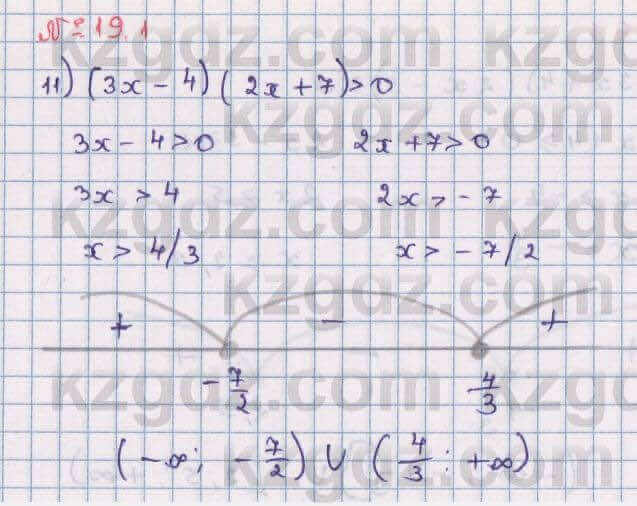 № 19.1
11) (3x - 4) (2x + 7) > 0
3x - 4 > 0 2x + 7 > 0
3x > 4 2x > - 7
x > 4/3 x > - 7/2
+ - +
-7/2 4/3
(-∞; -7/2) ∪ (4/3; +∞)
kzgdz.com
kzgdz.com
kzgdz.com
kzgdz.com
kzgdz.com
kzgdz.com